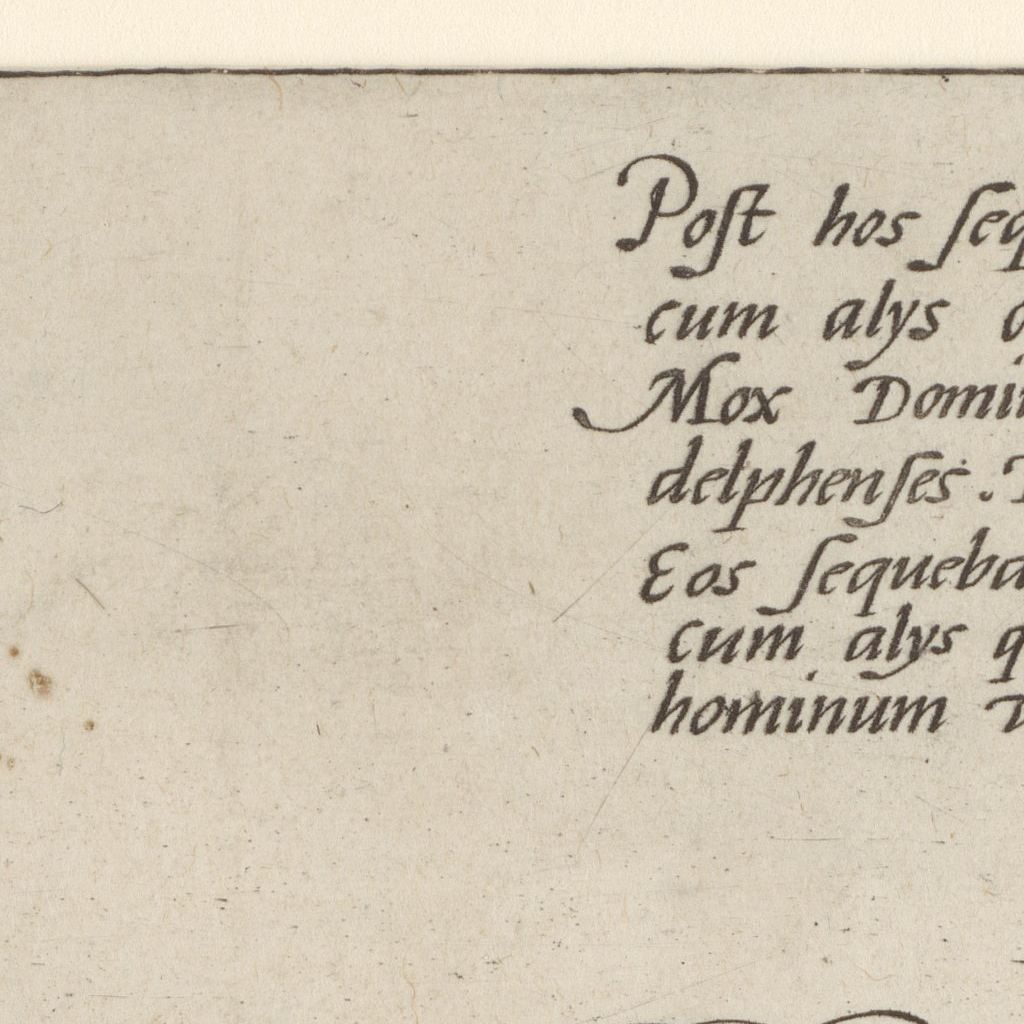 Poſt hos ſeq
cum alys
Mox Domi
delphenſes.
Eos ſequeba
cum alys q
hominum